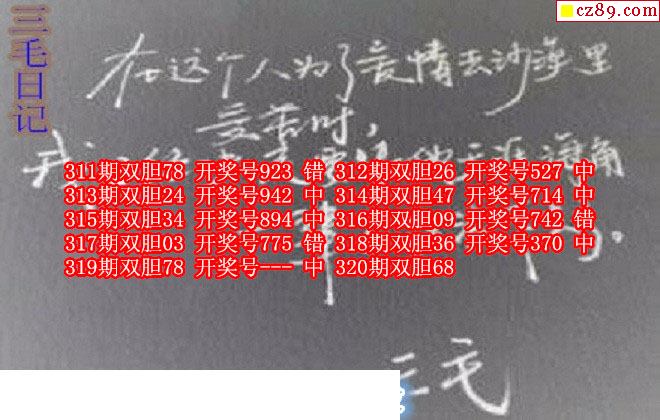 cz89.com
三毛日记
在这个人为了爱情去沙漠里
受苦时，
311期双胆78 开奖号923 错 312期双胆26 开奖号527 中
313期双胆24 开奖号942 中 314期双胆47 开奖号714 中
315期双胆34 开奖号894 中 316期双胆09 开奖号742 错
317期双胆03 开奖号775 错 318期双胆36 开奖号370 中
319期双胆78 开奖号--- 中 320期双胆68
三毛